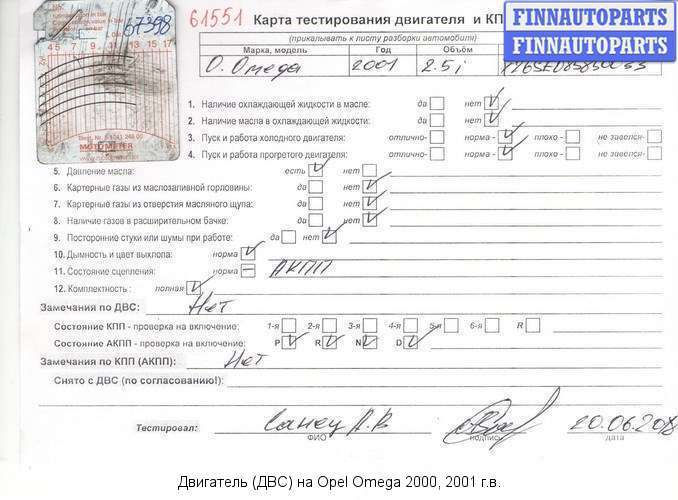 61551
67398
Карта тестирования двигателя и КП
FINNAUTOPARTS
FINNAUTOPARTS
(прикалывать к листу разборки автомобиля)
Марка, модель Год Объём
O. Omega 2001 2.5i
4 5 7 9 11 13 15 17
MOTOMETER
1. Наличие охлаждающей жидкости в масле: да нет
2. Наличие масла в охлаждающей жидкости: да нет
3. Пуск и работа холодного двигателя: отлично- норма- плохо- не завелся-
4. Пуск и работа прогретого двигателя: отлично- норма- плохо- не завелся-
5. Давление масла: есть нет
6. Картерные газы из маслозаливной горловины: да нет
7. Картерные газы из отверстия масляного щупа: да нет
8. Наличие газов в расширительном бачке: да нет
9. Посторонние стуки или шумы при работе: да нет
10. Дымность и цвет выхлопа: норма
11. Состояние сцепления: норма АКПП
12. Комплектность: полная
Замечания по ДВС: Нет
Состояние КПП - проверка на включение: 1-я 2-я 3-я 4-я 5-я 6-я R
Состояние АКПП - проверка на включение: P R N D
Замечания по КПП (АКПП): Нет
Снято с ДВС (по согласованию!):
Тестировал: А.В 20.06.20
ФИО подпись дата
Двигатель (ДВС) на Opel Omega 2000, 2001 г.в.